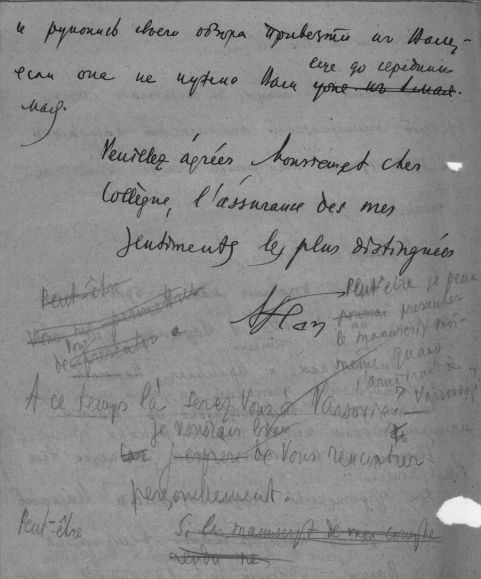 и рукопись своего обзора привезти
если она не нужна Вам еще до середины
уже к 1 мая.
мая.
Veuillez agréer Monsieur et cher
Collègue, l'assurance des mes
sentiments les plus distinguées
Peut-être
Vous me permettez
Vous
de presenter a
Peut-être je peux
presenter
le manuscrit moi-
même quand
j'arriverai à
Varsovie?
A ce temps là serez Vous à Varsovie?
je voudrais bien
j'espère de Vous rencontrer
personellement.
Peut-être
Si le manuscript de mon compte
rendu ne